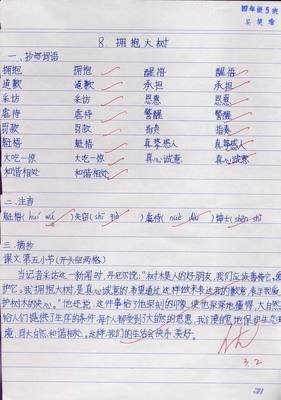 四年级5班
8. 拥抱大树
一、抄写词语
拥抱 拥抱 醒悟 醒悟
道歉 道歉 承担 承担
采访 采访 恩惠 恩惠
虐待 虐待 警醒 警醒
罚款 罚款 指责 指责
魁梧 魁梧 真挚感人 真挚感人
大吃一惊 大吃一惊 真心诚意 真心诚意
和谐相处 和谐相处
二、注音
魁梧(kuí wú) 失窃(shī qiè) 虐待(nüè dài) 绅士(shēn shì)
三、摘抄
课文第五小节(开头空两格)
当记者采访这一新闻时,丹尼尔说:"树木是人的好朋友,我们应该善待它,爱
护它。我拥抱大树,是真心诚意的,希望通过这样做来表达我的歉意,表示我爱
护树木的决心。"他还说,这件事给了他深刻的印象,使他深深地懂得,大自然
给人们提供了生存的条件,每个人都受到了大自然的恩惠,我们要自觉地保护生态环
境,同大自然和谐相处。这样,我们的生活会快乐、美好。
3.2